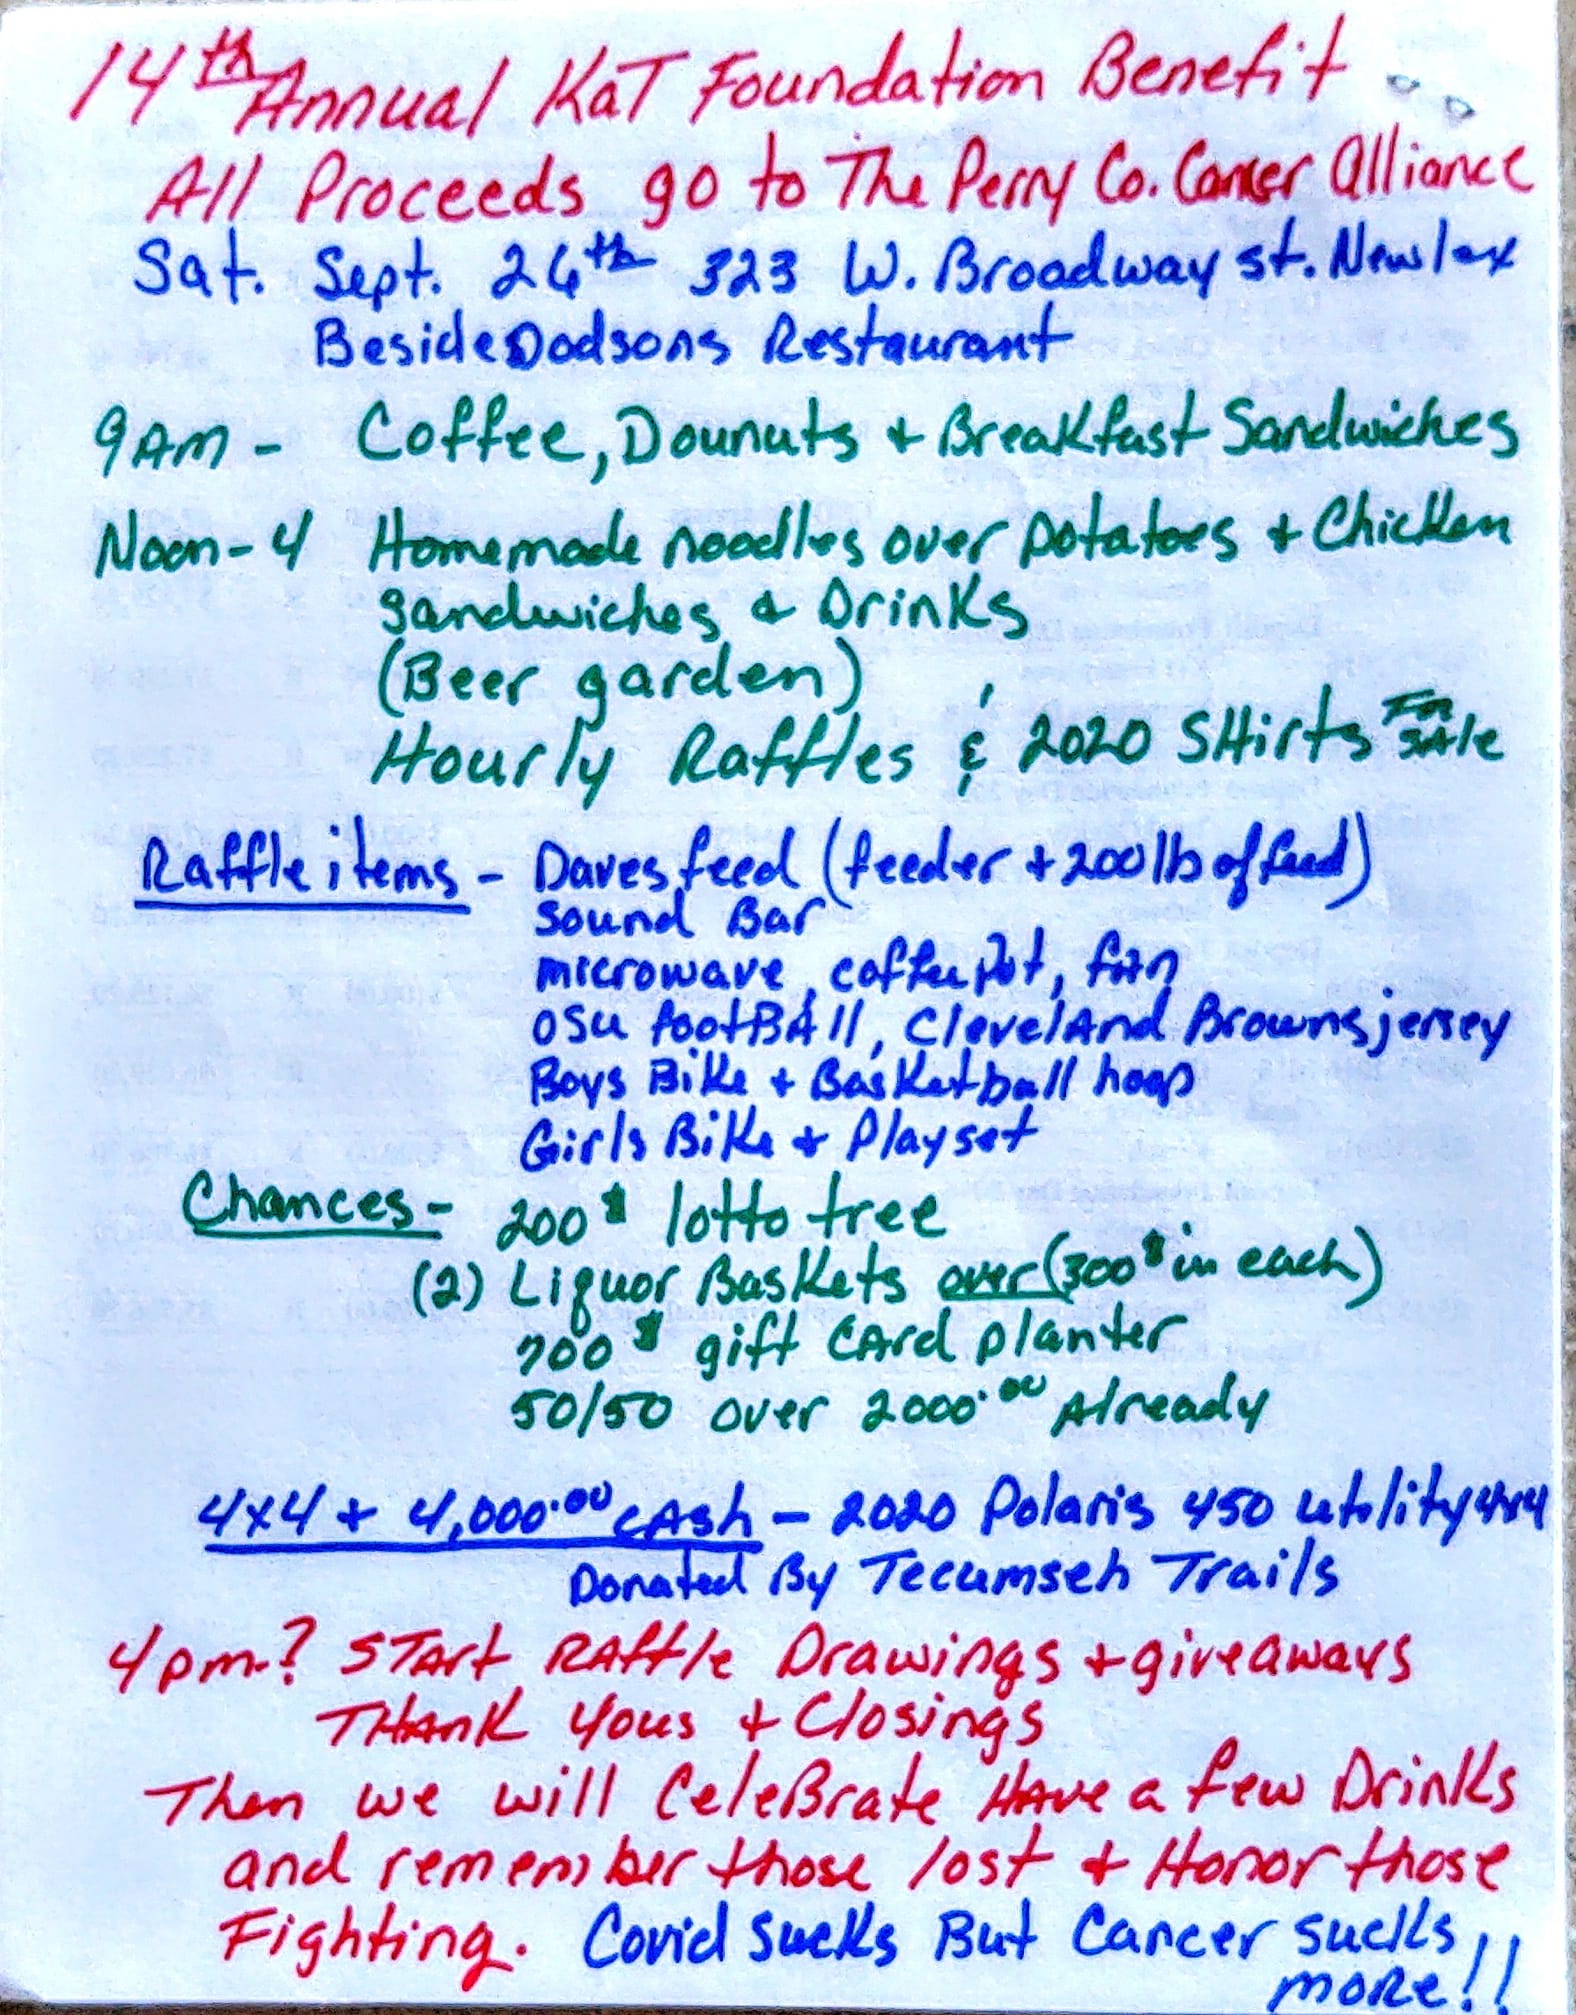 14th Annual KaT Foundation Benefit
All Proceeds go to The Perry Co. Cancer Alliance
Sat. Sept. 26th 323 W. Broadway st. New lex
Beside Dodsons Restaurant
9AM - Coffee, Dounuts + Breakfast Sandwiches
Noon-4 Homemade noodles over potatoes + Chicken
sandwiches & Drinks
(Beer garden)
Hourly Raffles & 2020 SHirts For SAle
Raffle items - Daves feed (feeder + 200 lb of feed)
sound Bar
microwave, coffee pot, fan
OSU footBAll, ClevelAnd Browns jersey
Boys Bike + Basketball hoop
Girls Bike + Playset
Chances - 200$ lotto tree
(2) Liquor Baskets over (300$ in each)
700$ gift CArd planter
50/50 over 2000.00 Already
4x4 + 4,000.00 cAsh - 2020 Polaris 450 utility 4x4
Donated By Tecumseh Trails
4pm-? STArt RAffle Drawings + giveaways
THANK yous + Closings
Then we will CeleBrate HAve a few Drinks
and remember those lost + Honor those
Fighting. Covid sucks But Cancer sucks
more!!